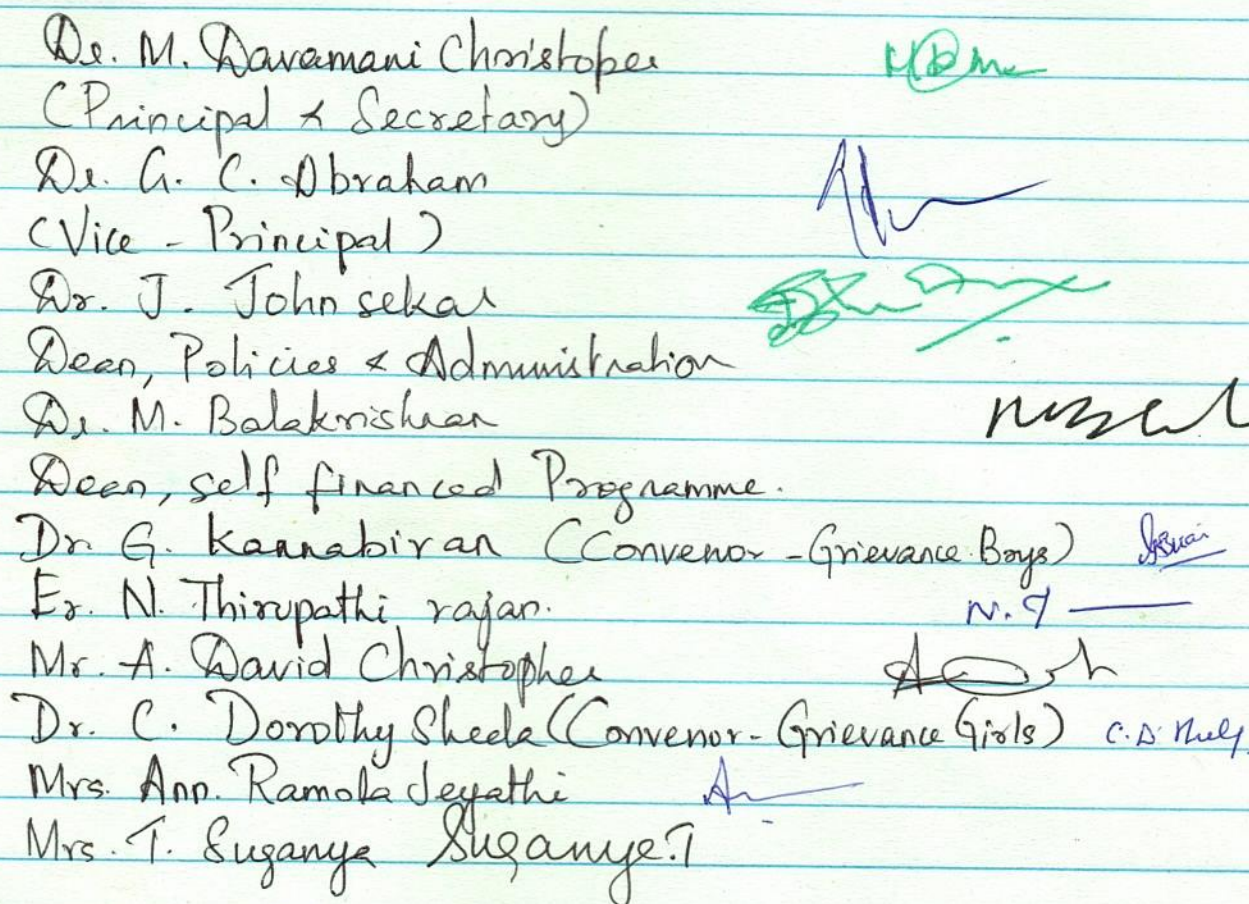 Dr. M. Davamani Christoper
(Principal & Secretary)
Dr. G. C. Abraham
(Vice - Principal)
Dr. J. John sekar
Dean, Policies & Administration
Dr. M. Balakrishnan
Dean, self financed Programme.
Dr. G. Kannabiran (Convenor - Grievance Boys)
Er. N. Thirupathi rajan. N. T
Mr. A. David Christopher
Dr. C. Dorothy Sheela (Convenor - Grievance Girls) C. D.
Mrs. Ann. Ramola Jeyathi
Mrs. T. Suganya Suganya.T